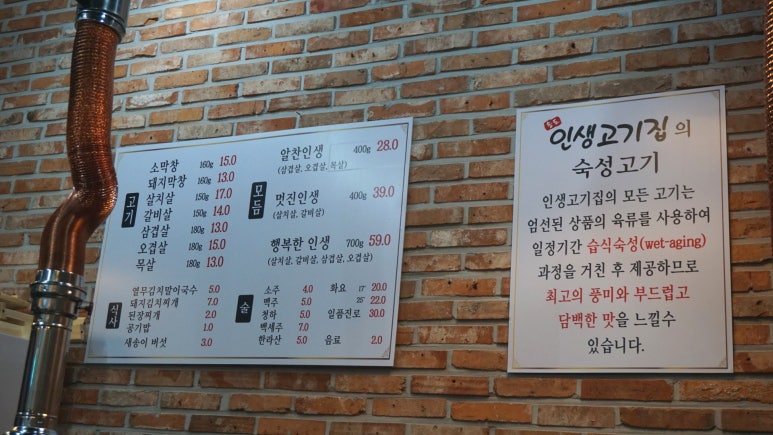 고기
소막창 160g 15.0
돼지막창 160g 13.0
살치살 150g 17.0
갈비살 150g 14.0
삼겹살 180g 13.0
오겹살 180g 15.0
목살 180g 13.0
모듬
알찬인생 400g 28.0
(삼겹살, 오겹살, 목살)
멋진인생 400g 39.0
(살치살, 갈비살)
행복한 인생 700g 59.0
(살치살, 갈비살, 삼겹살, 오겹살)
식사
열무김치말이국수 5.0
돼지김치찌개 7.0
된장찌개 2.0
공기밥 1.0
새송이 버섯 3.0
술
소주 4.0 화요 17 20.0
맥주 5.0 25 22.0
청하 5.0 일품진로 30.0
백세주 7.0
한라산 5.0 음료 2.0
인생고기집의
숙성고기
인생고기집의 모든 고기는
엄선된 상품의 육류를 사용하여
일정기간 습식숙성(wet-aging)
과정을 거친 후 제공하므로
최고의 풍미와 부드럽고
담백한 맛을 느낄수
있습니다.